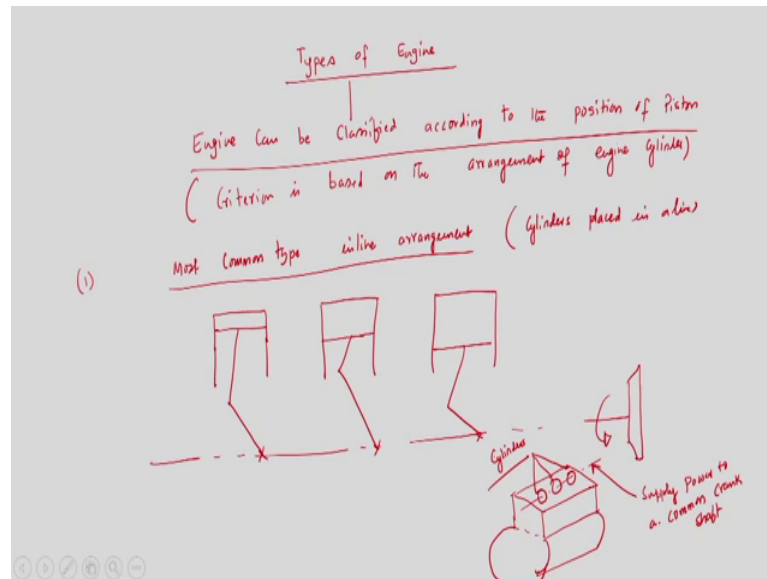 Types of Engine
Engine Can be Classified according to the position of Piston
( Criterion is based on the arrangement of engine Cylinder)
(1) Most Common type inline arrangement ( Cylinders placed in a line)
Cylinders
Supply Power to
a common crank
shaft